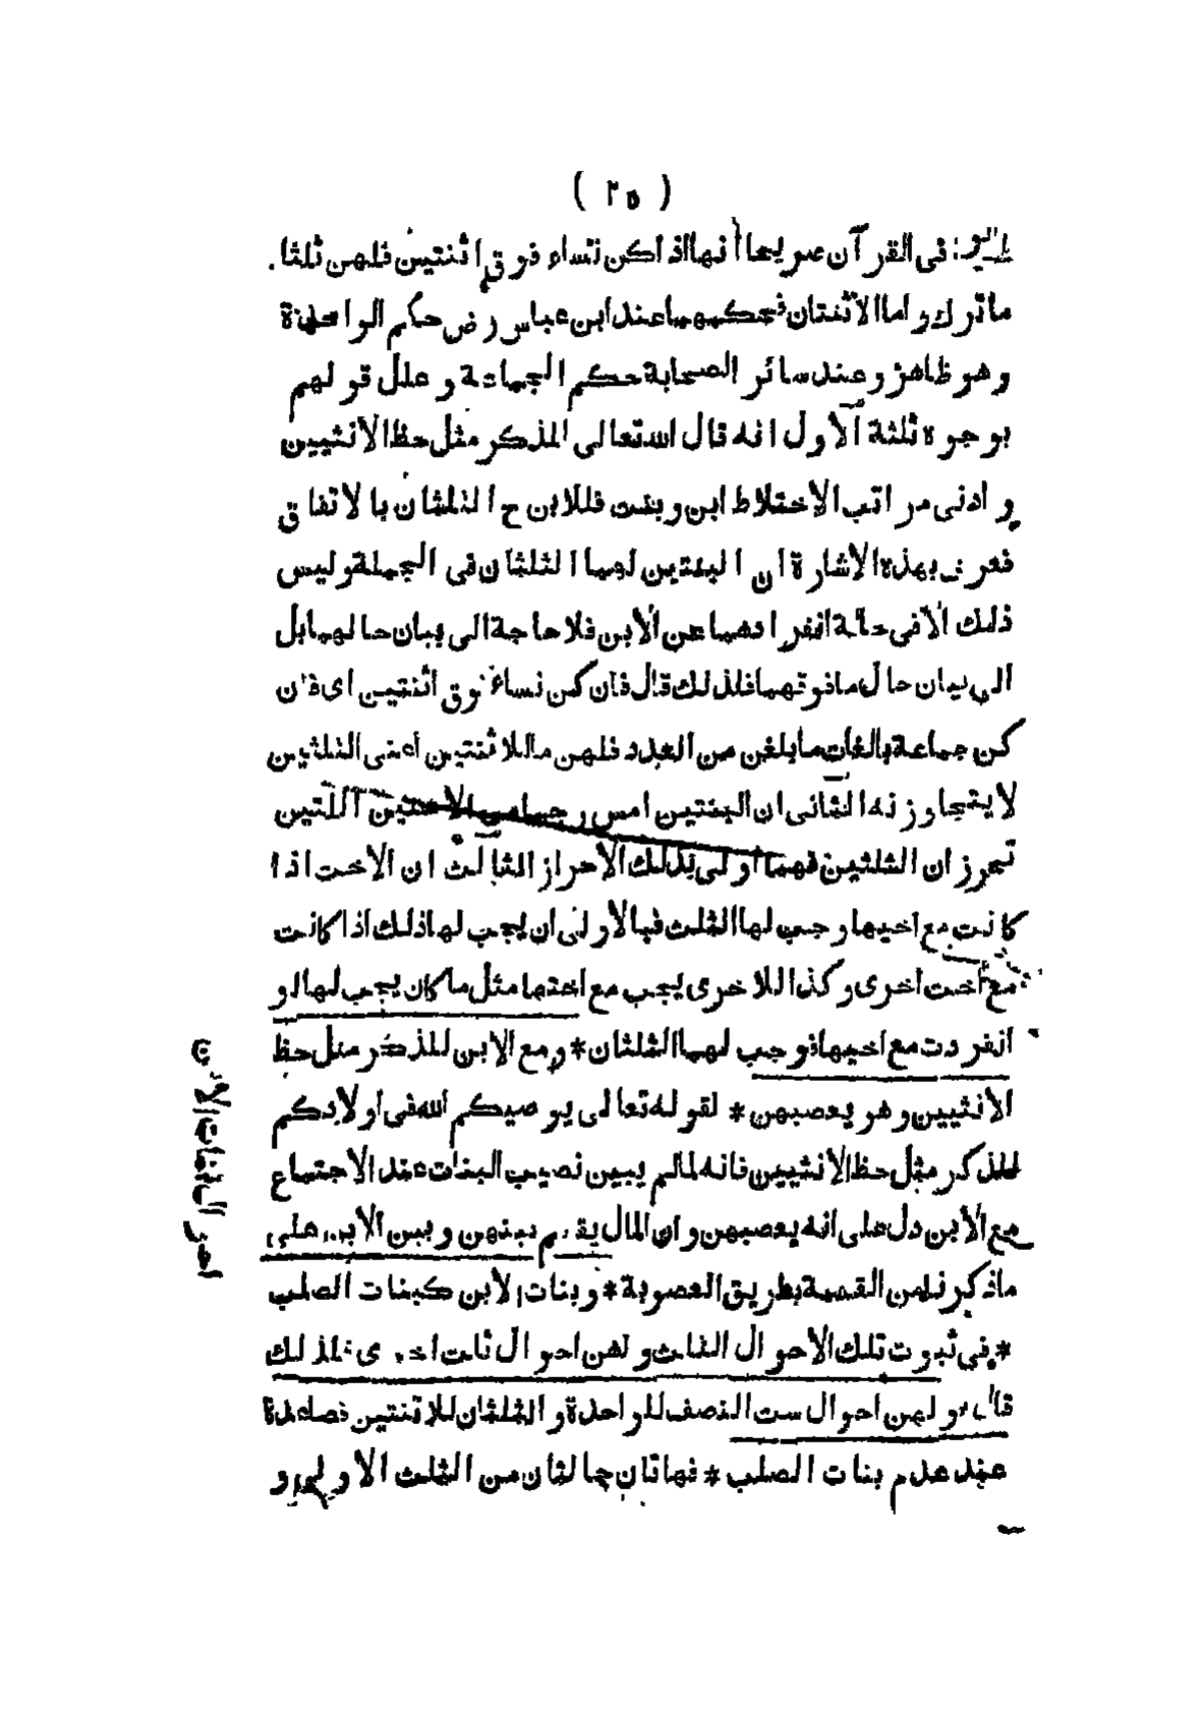 ( ٢٥ )
فى القرآن صريحا أنها اذا كن نساء فوق اثنتين فلهن ثلثا
ما ترك واما الاثنتان فحكمهما عند ابن عباس رض حكم الواحدة
وهو ظاهر وعند سائر الصحابة حكم الجماعة وعلل قولهم
بوجوه ثلثة الاول انه قال الله تعالى للذكر مثل حظ الانثيين
وادنى مراتب الاختلاط ابن وبنت فللابن ح الثلثان بالاتفاق
فعرف بهذه الاشارة ان البنتين لهما الثلثان فى الجملة وليس
ذلك الا فى حالة انفرادهما عن الابن فلا حاجة الى بيان حالهما بل
الى بيان حال ما فوقهما فلذلك قال فان كن نساء فوق اثنتين اى فان
كن جماعة بالغات ما بلغن من العدد فلهن ما للاثنتين اعنى الثلثين
لا يتجاوزنه الثانى ان البنتين امس رحما من الاختين اللتين
تحرزان الثلثين فهما اولى بذلك الاحراز الثالث ان الاخت اذا
كانت مع اخيها وجب لها الثلث فبالاولى ان يجب لها ذلك اذا كانت
مع أخت اخرى وكذا للاخرى يجب مع اختها مثل ما كان يجب لها لو
انفردت مع اخيها فوجب لهما الثلثان * ومع الابن للذكر مثل حظ
الانثيين وهو يعصبهن * لقوله تعالى يوصيكم الله فى اولادكم
للذكر مثل حظ الانثيين فانه لما لم يبين نصيب البنات عند الاجتماع
مع الابن دل على انه يعصبهن وان المال يقسم بينهن وبين الابن على
ما ذكر نا من القسمة بطريق العصوبة * وبنات الابن كبنات الصلب
* فى ثبوت تلك الاحوال الثلث ولهن احوال ثلث اخرى فلذلك
قال ولهن احوال ست النصف للواحدة والثلثان للاثنتين فصاعدة
عند عدم بنات الصلب * فهاتان حالتان من الثلث الاول و
احوال بنات الابن